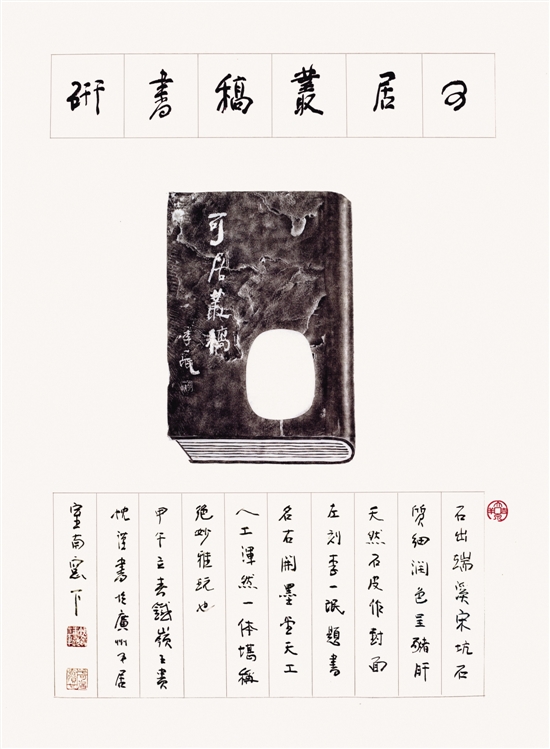 可居叢稿書研
可居叢稿
李一氓
石出端溪宋坑石
質細潤色呈豬肝
天然石皮作封面
左刻李一氓題書
名右開墨堂天工
人工渾然一体堪稱
絕妙雅玩也
甲午立春鐵嶺王貴
忱謹書於廣州可居
室南窗下